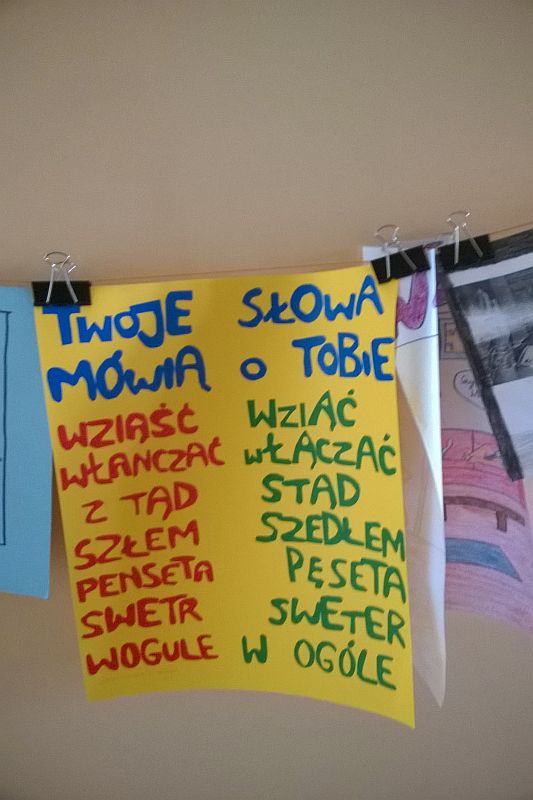 TWOJE SŁOWA
MÓWIĄ O TOBIE
WZIĄŚĆ WZIĄĆ
WŁANCZAĆ WŁĄCZAĆ
Z TĄD STĄD
SZŁEM SZEDŁEM
PENSETA PĘSETA
SWETR SWETER
WOGULE W OGÓLE